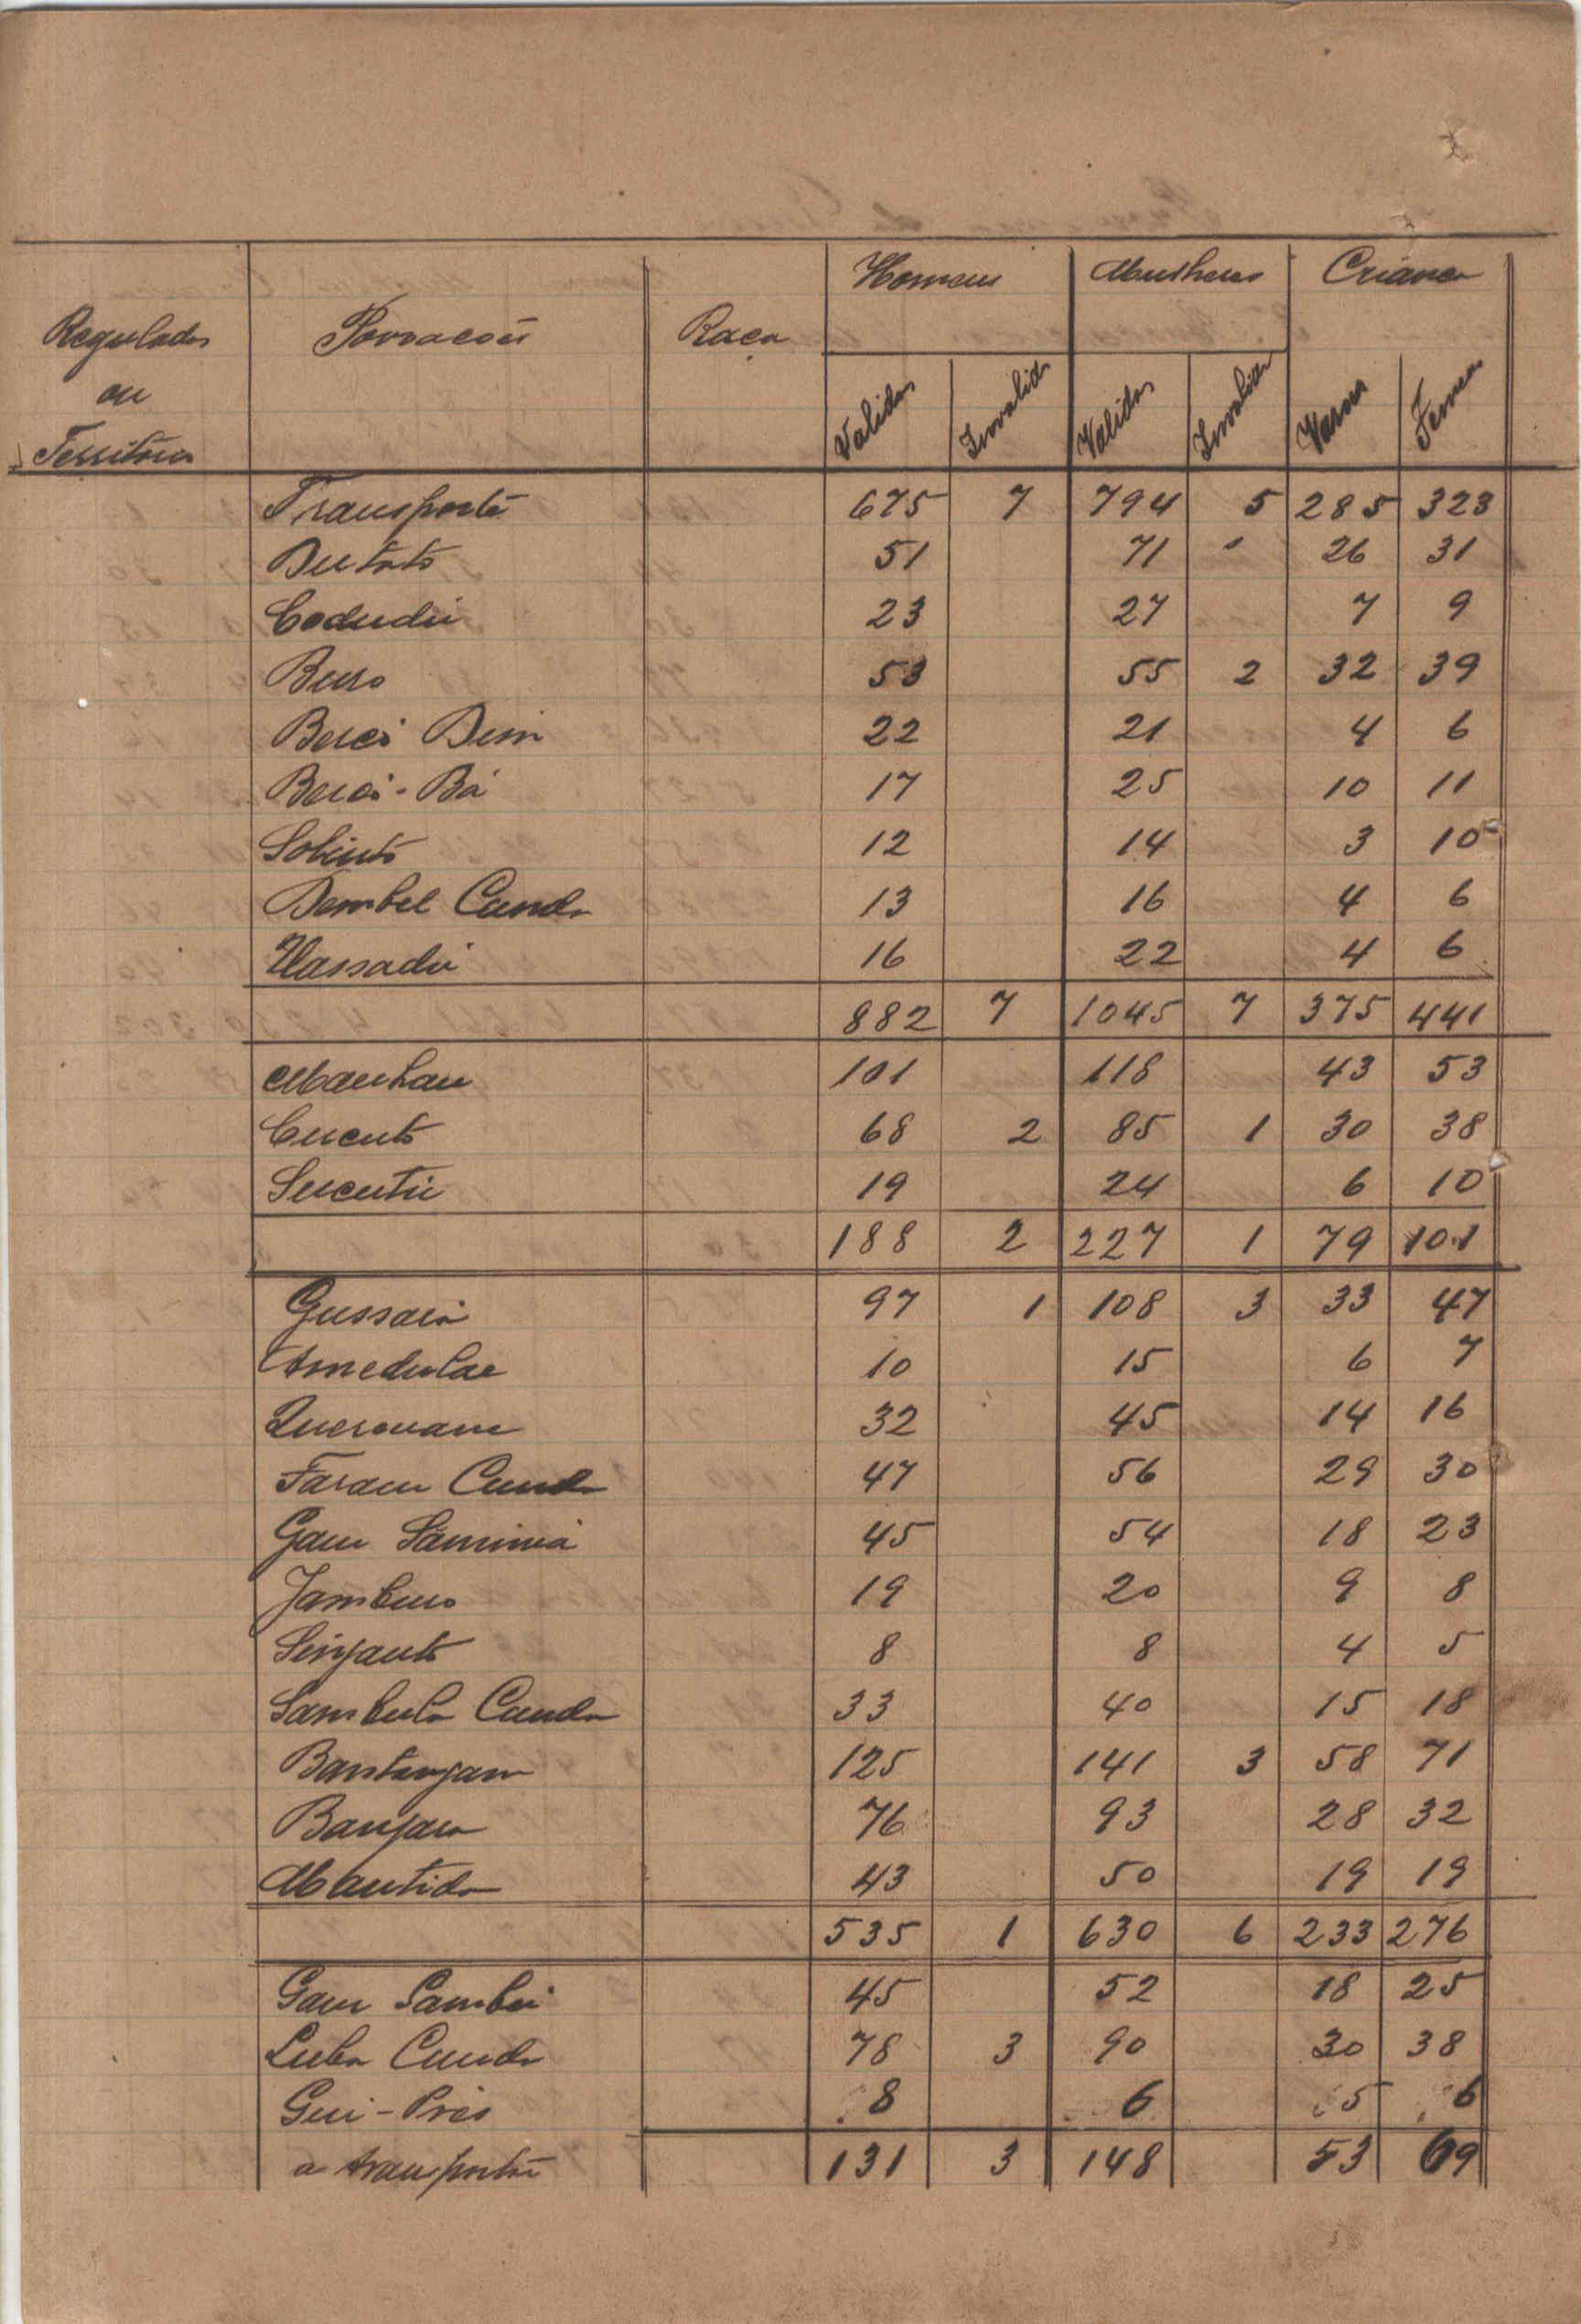 Homens Mulheres Crianca
Regulados Povoacoes Raça
ou
Territorios
Validos Invalidos Validas Invalidas Varões Femeas
Transporte 675 7 794 5 285 323
Dutato 51 71 " 26 31
Codudu 23 27 7 9
Buro 53 55 2 32 39
Bucó Dim 22 21 4 6
Bucó-Bá 17 25 10 11
Solinto 12 14 3 10
Dembel Cunda 13 16 4 6
Uassadu 16 22 4 6
882 7 1045 7 375 441
Manhau 101 118 43 53
Cucuto 68 2 85 1 30 38
Sucutu 19 24 6 10
188 2 227 1 79 101
Gussará 97 1 108 3 33 47
Amedulae 10 15 6 7
Querouane 32 45 14 16
Faram Cunda 47 56 29 30
Gam Sáminiá 45 54 18 23
Jamburo 19 20 9 8
Sinjanto 8 8 4 5
Sambula Cunda 33 40 15 18
Bantanjam 125 141 3 58 71
Banjara 76 93 28 32
Mantida 43 50 19 19
535 1 630 6 233 276
Gam Sambu 45 52 18 25
Luba Cunda 78 3 90 30 38
Gui-Prés 8 6 5 6
a transportar 131 3 148 53 69